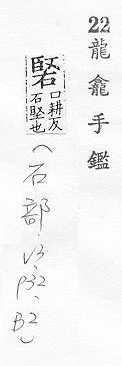 22龍龕手鑑
硻口耕反石堅也（石部、V3、P32、B2）